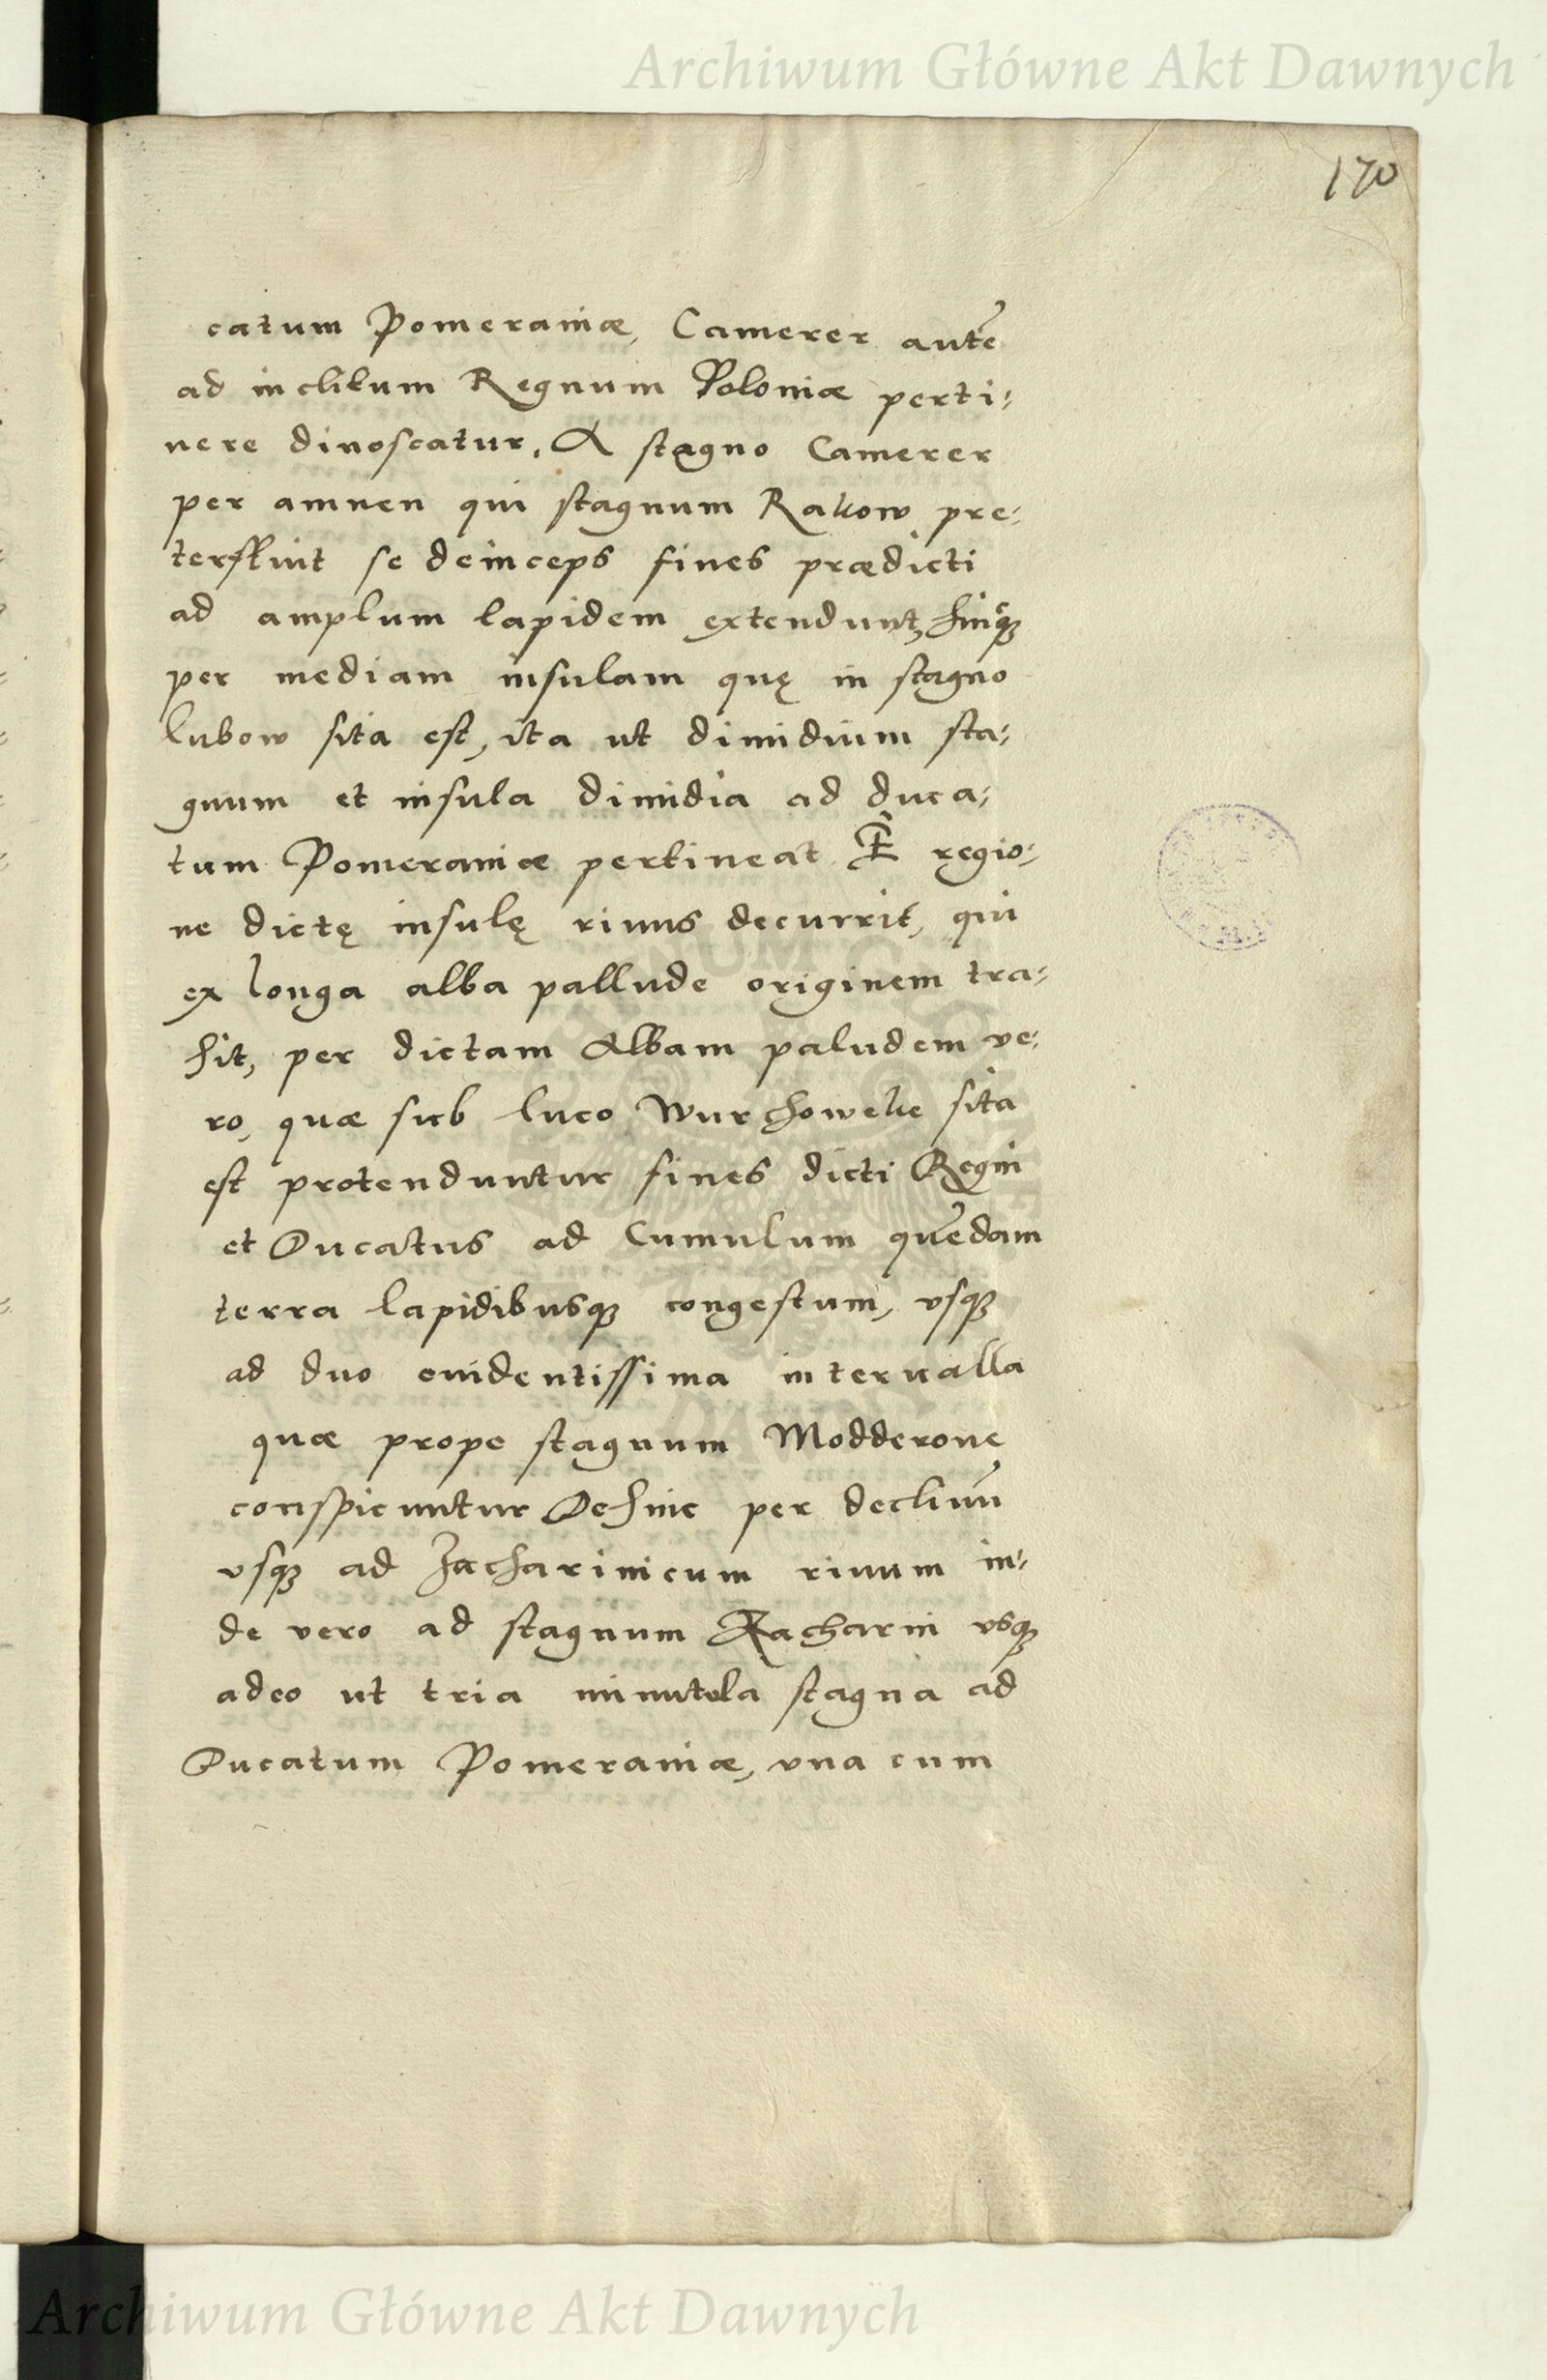 Archiwum Główne Akt Dawnych
170
catum Pomeraniæ, Camerer autẽ
ad inclitum Regnum Poloniæ perti-
nere dinoscatur. A stagno Camerer
per amnen qui stagnum Rakow pre-
terfluit se deinceps fines prædicti
ad amplum lapidem extendunt, hincq;
per mediam insulam quę in stagno
Lubow sita est, ita ut dimidium sta-
gnum et insula dimidia ad duca-
tum Pomeraniæ pertineat. E regio-
ne dictę insulę riuus decurrit, qui
ex longa alba pallude originem tra-
hit, per dictam Albam paludem ve-
ro, quæ sub luco Wurchoweke sita
est protenduntur fines dicti Regni
et Ducatus ad Cumulum quẽdam
terra lapidibusq; congestum, vsq;
ad duo euidentissima interualla
quæ prope stagnum Modderone
conspicuntur Dehinc per decliuũ
vsq; ad Zacharinicum riuum in-
de vero ad stagnum Zacharin vsq;
adeo ut tria minutula stagna ad
Ducatum Pomeraniæ, vna cum
Archiwum Główne Akt Dawnych